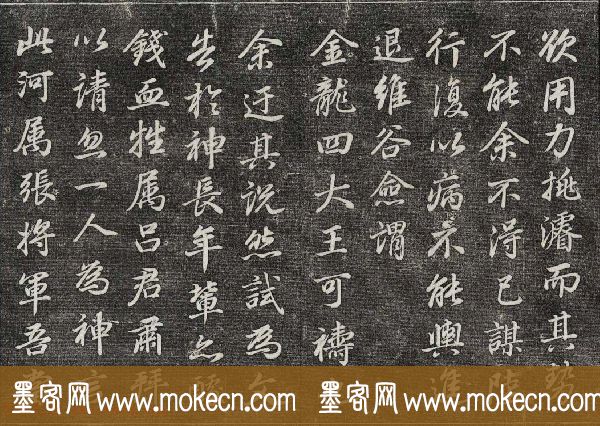 欲用力挑濬而其
不能余不淂已謀
行復以病不能輿進
退維谷僉謂
金龍四大王可禱
余迂其說然試為
告於神長年輩亦
錢血牲属吕君肅拜
以請忽一人為神言
此河属張將軍吾
墨客网 www.mokecn.com 墨客网 www.mokecn.com